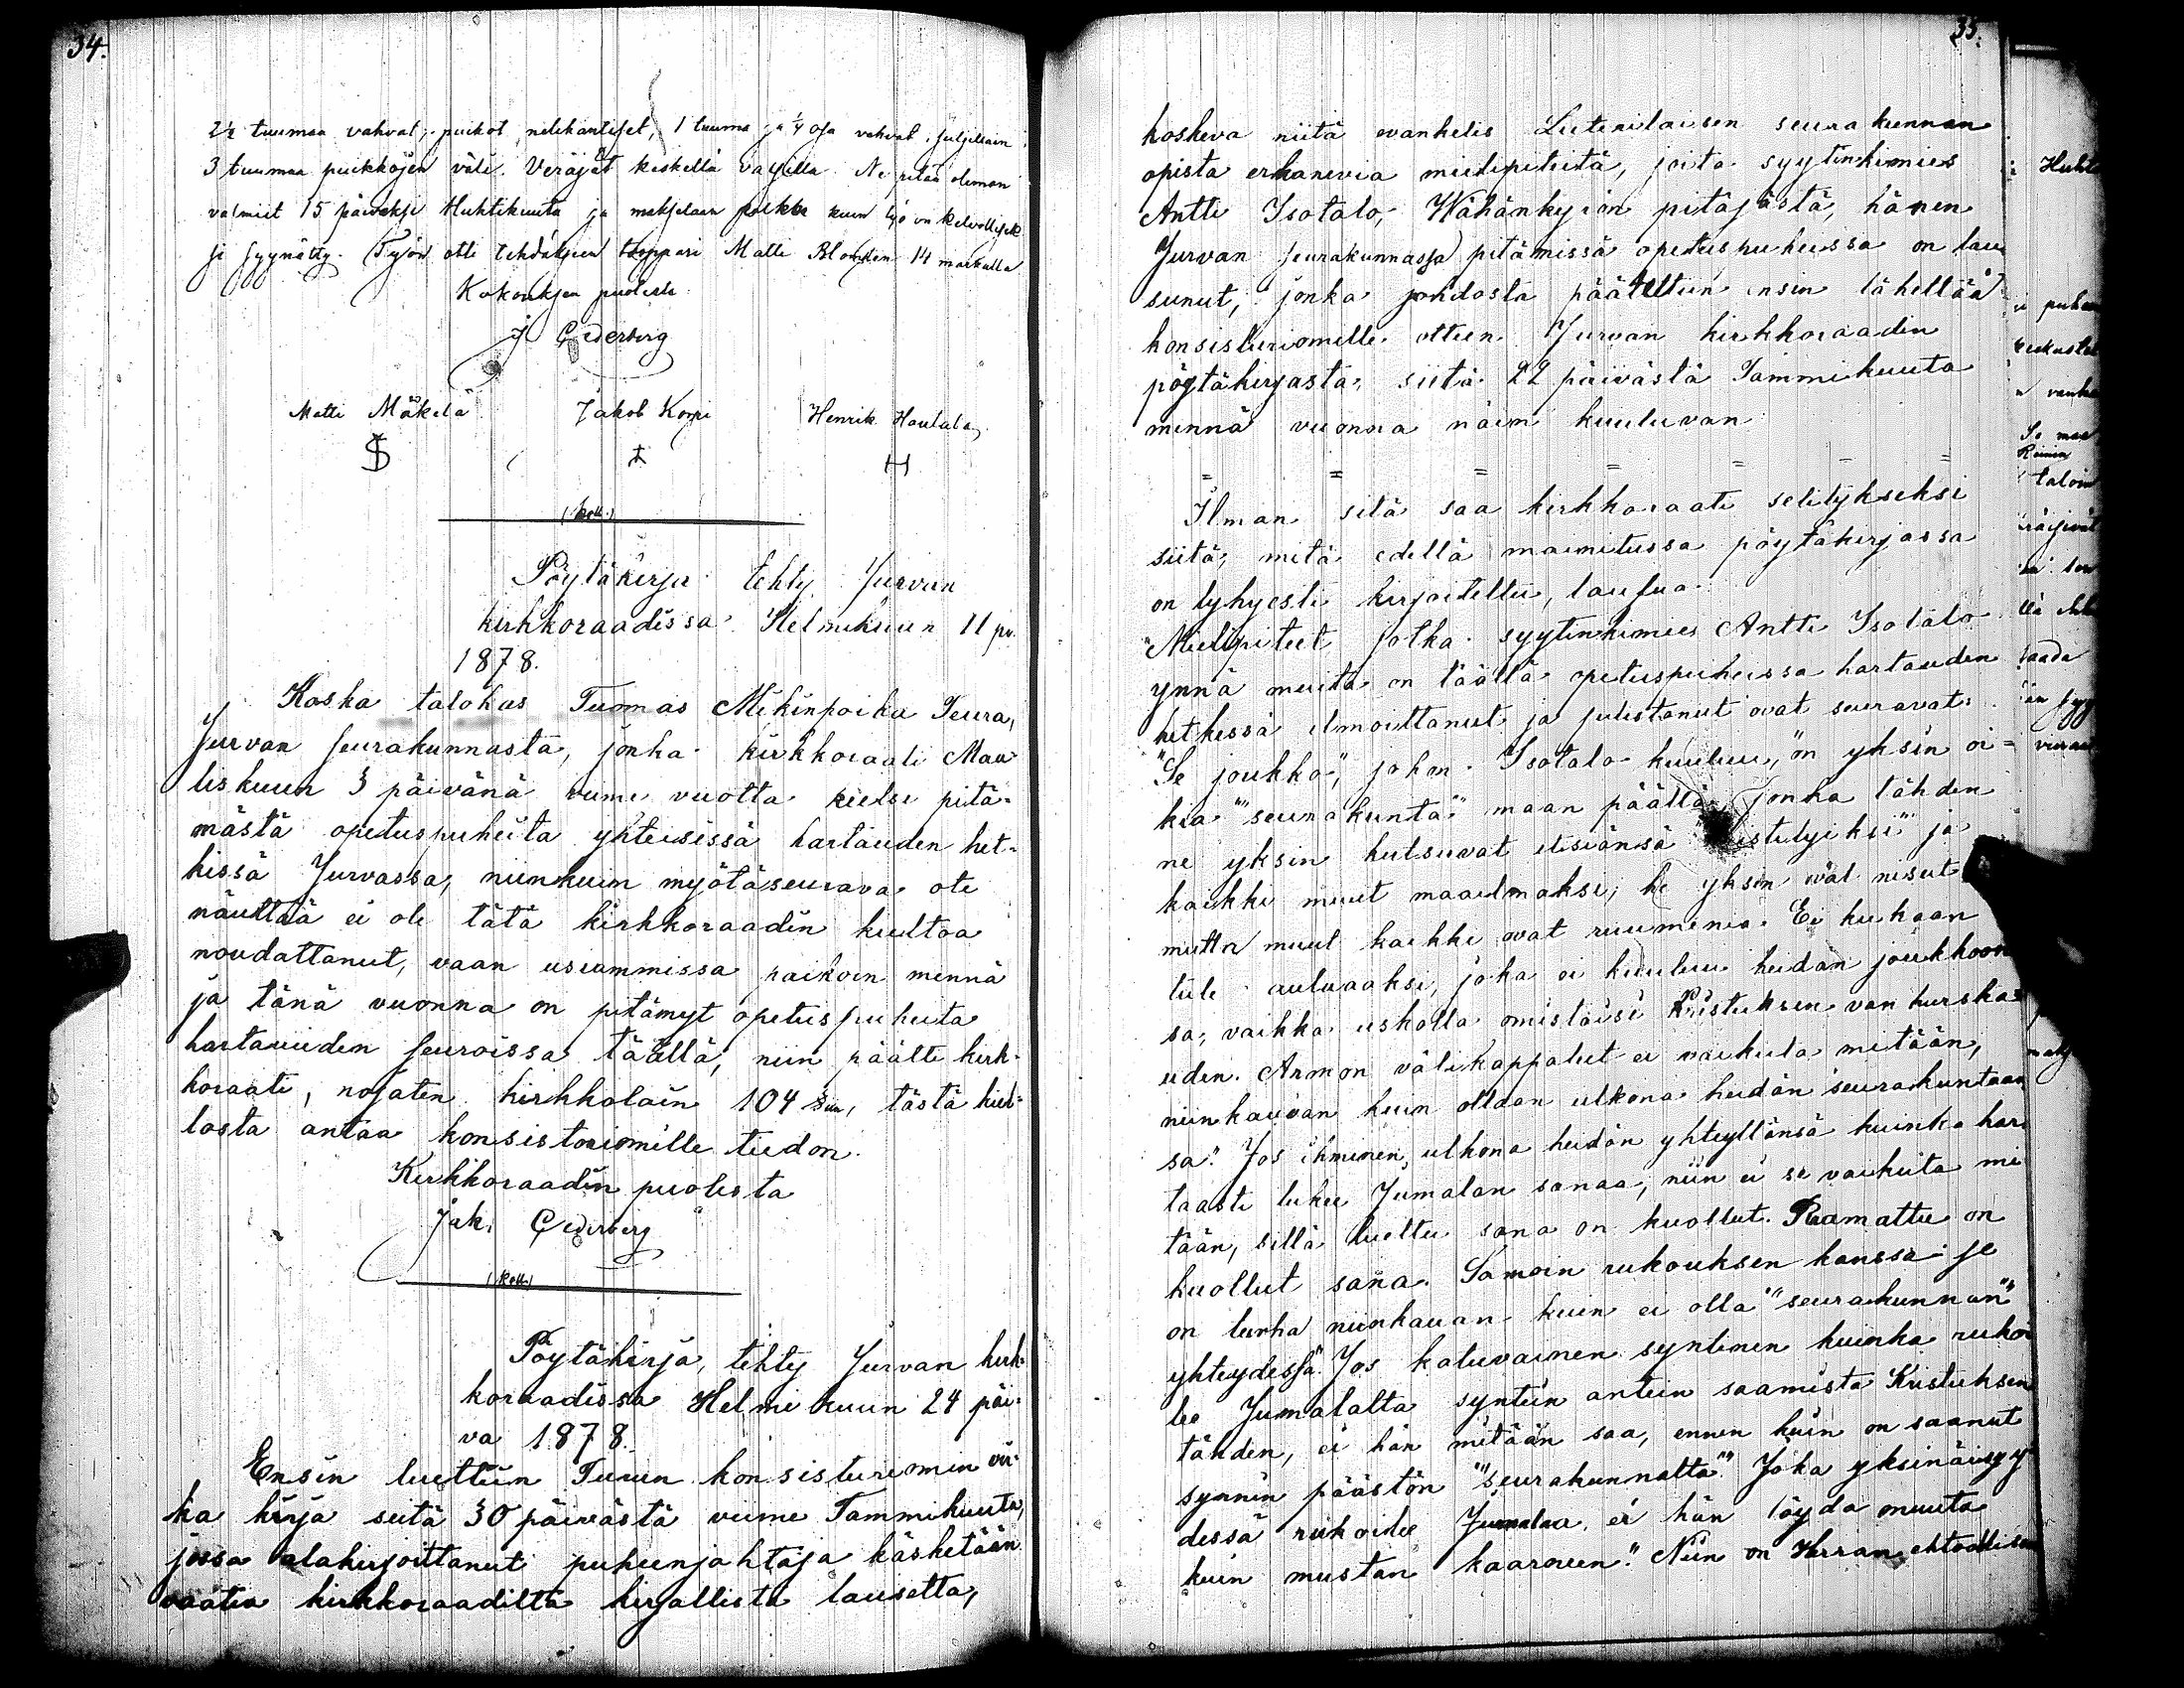 34.
2½ tuumaa vahvat, puikot nelikantiset, 1 tuuma ja ¼ osa vahvat,
3 tuumaa puikkojen väli. Veräjät keskellä Ne pitää oleman
valmiit 15 päiväksi Huhtikuuta ja maksetaan palkka kuin työ on
ja syynätty. Työn otti tehdäkseen torppari Matti 14 markalla
Kokouksen puolesta
J Cederberg
Matti Mäkelä Jakob Korpi Henrik Hautala
H
(Koll.)
Pöytäkirja tehty Jurvan
kirkkoraadissa Helmikuun 11 pv.
1878.
Koska talokas Tuomas Mikinpoika Teura,
Jurvan seurakunnasta, jonka kirkkoraati Maa-
liskuun 3 päivänä viime vuotta kielsi pitä-
mästä opetuspuheita yhteisissä hartauden het-
kissä Jurvassa, niinkuin myötäseuraava ote
näyttää ei ole tätä kirkkoraadin kieltoa
noudattanut, vaan useammissa paikoin mennä
ja tänä vuonna on pitänyt opetuspuheita
hartauuden seuroissa täällä, niin päätti kirk-
koraati, nojaten kirkkolain 104 §:ään, tästä kiel-
losta antaa konsistoriomille tiedon.
Kirkkoraadin puolesta
Jak. Cederberg
(Koll.)
Pöytäkirja, tehty Jurvan kirk-
koraadissa Helmikuun 24 päi-
vä 1878.
Ensin luettiin Turun konsisturiomin vir-
ka kirja siitä 30 päivästä viime Tammikuuta,
jossa alakirjoittanut puheenjohtaja käsketään
vaatia kirkkoraadilta kirjallista lausetta,
35.
koskeva niitä evankelis Luterilaisen seurakunnan
opista erkanevia mielipiteitä, joita syytinkimies
Antti Isotalo, Wähänkyrön pitäjästä, hänen
Jurvan seurakunnassa pitämissä opetuspuheissa on lau
sunut, jonka johdosta päätettiin ensin lähettää
konsisturiomille otteen Jurvan kirkkoraadin
pöytäkirjasta, siitä 22 päivästä Tammikuuta
mennä vuonna näin kuuluvan
= = = = = = =
Ilman sitä saa kirkkoraati selitykseksi
siitä, mitä edellä mainitussa pöytäkirjassa
on lyhyesti kirjoitettu, lausua.
Mielipiteet jotka syytinkimies Antti Isotalo
ynnä muita on täällä opetuspuheissa hartauden
hetkissä ilmoittanut ja julistanut ovat seuraavat:
"Se joukko", johon Isotalo kuuluu, "on yksin oi=
kia "seurakunta" maan päällä, jonka tähden
ne yksin kutsuvat itsiänsä ja
kaikki muut maailmaksi, he yksin ovat nisut
mutta muut kaikki ovat ruumenia. Ei kukaan
tule autuaaksi, joka ei kuuluu heidän joukkoon
sa, vaikka uskolla omistaisi Kristuksen vanhurskau
uden. Armon välikappaleet ei vaikuta mitään,
niinkauvan kuin ollaan ulkona heidän seurakuntaan
sa". Jos ihminen, ulkona heidän yhteyttänsä kuinka har
taasti lukee Jumalan sanaa, niin ei se vaikuta mi
tään, sillä luettu sana on kuollut. Raamattu on
kuollut sana. Samoin rukouksen kanssa se
on turha niinkauan kuin ei olla "seurakunnan"
yhteydessä". Jos katuvainen syntinen kuinka rukoi
lee Jumalalta syntein antein saamista Kristuksen
tähden, ei hän mitään saa, ennen kuin on saanut
synnin päästön "seurakunnalta". Joka yksinäisyy
dessä rukoilee Jumalaa, ei hän löydä muuta
kuin mustan kaarneen". Niin on Herran ehtoollisen